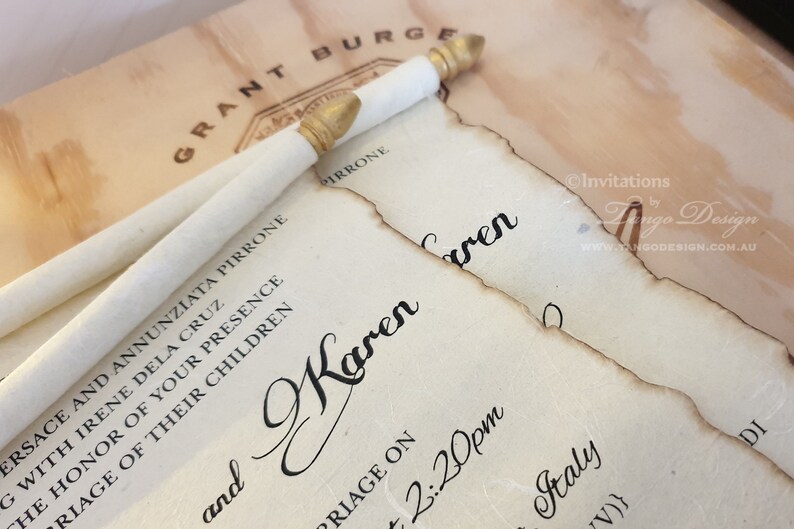 GRANT BURGE
©Invitations
by
Tango Design
WWW.TANGODESIGN.COM.AU
PIRRONE
Karen
ERSACE AND ANNUNZIATA PIRRONE
G WITH IRENE DELA CRUZ
THE HONOR OF YOUR PRESENCE
RIAGE OF THEIR CHILDREN
and Karen
RRIAGE ON
t 2:20pm
Italy
IV)}
DI